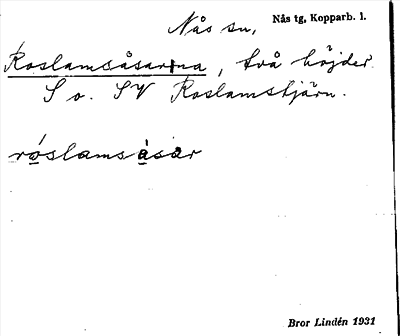 Nås sn, Nås tg, Kopparb. l.
Roslamsåsarna, två höjder
S o. SV Roslamstjärn.
róslamsàsar
Bror Lindén 1931